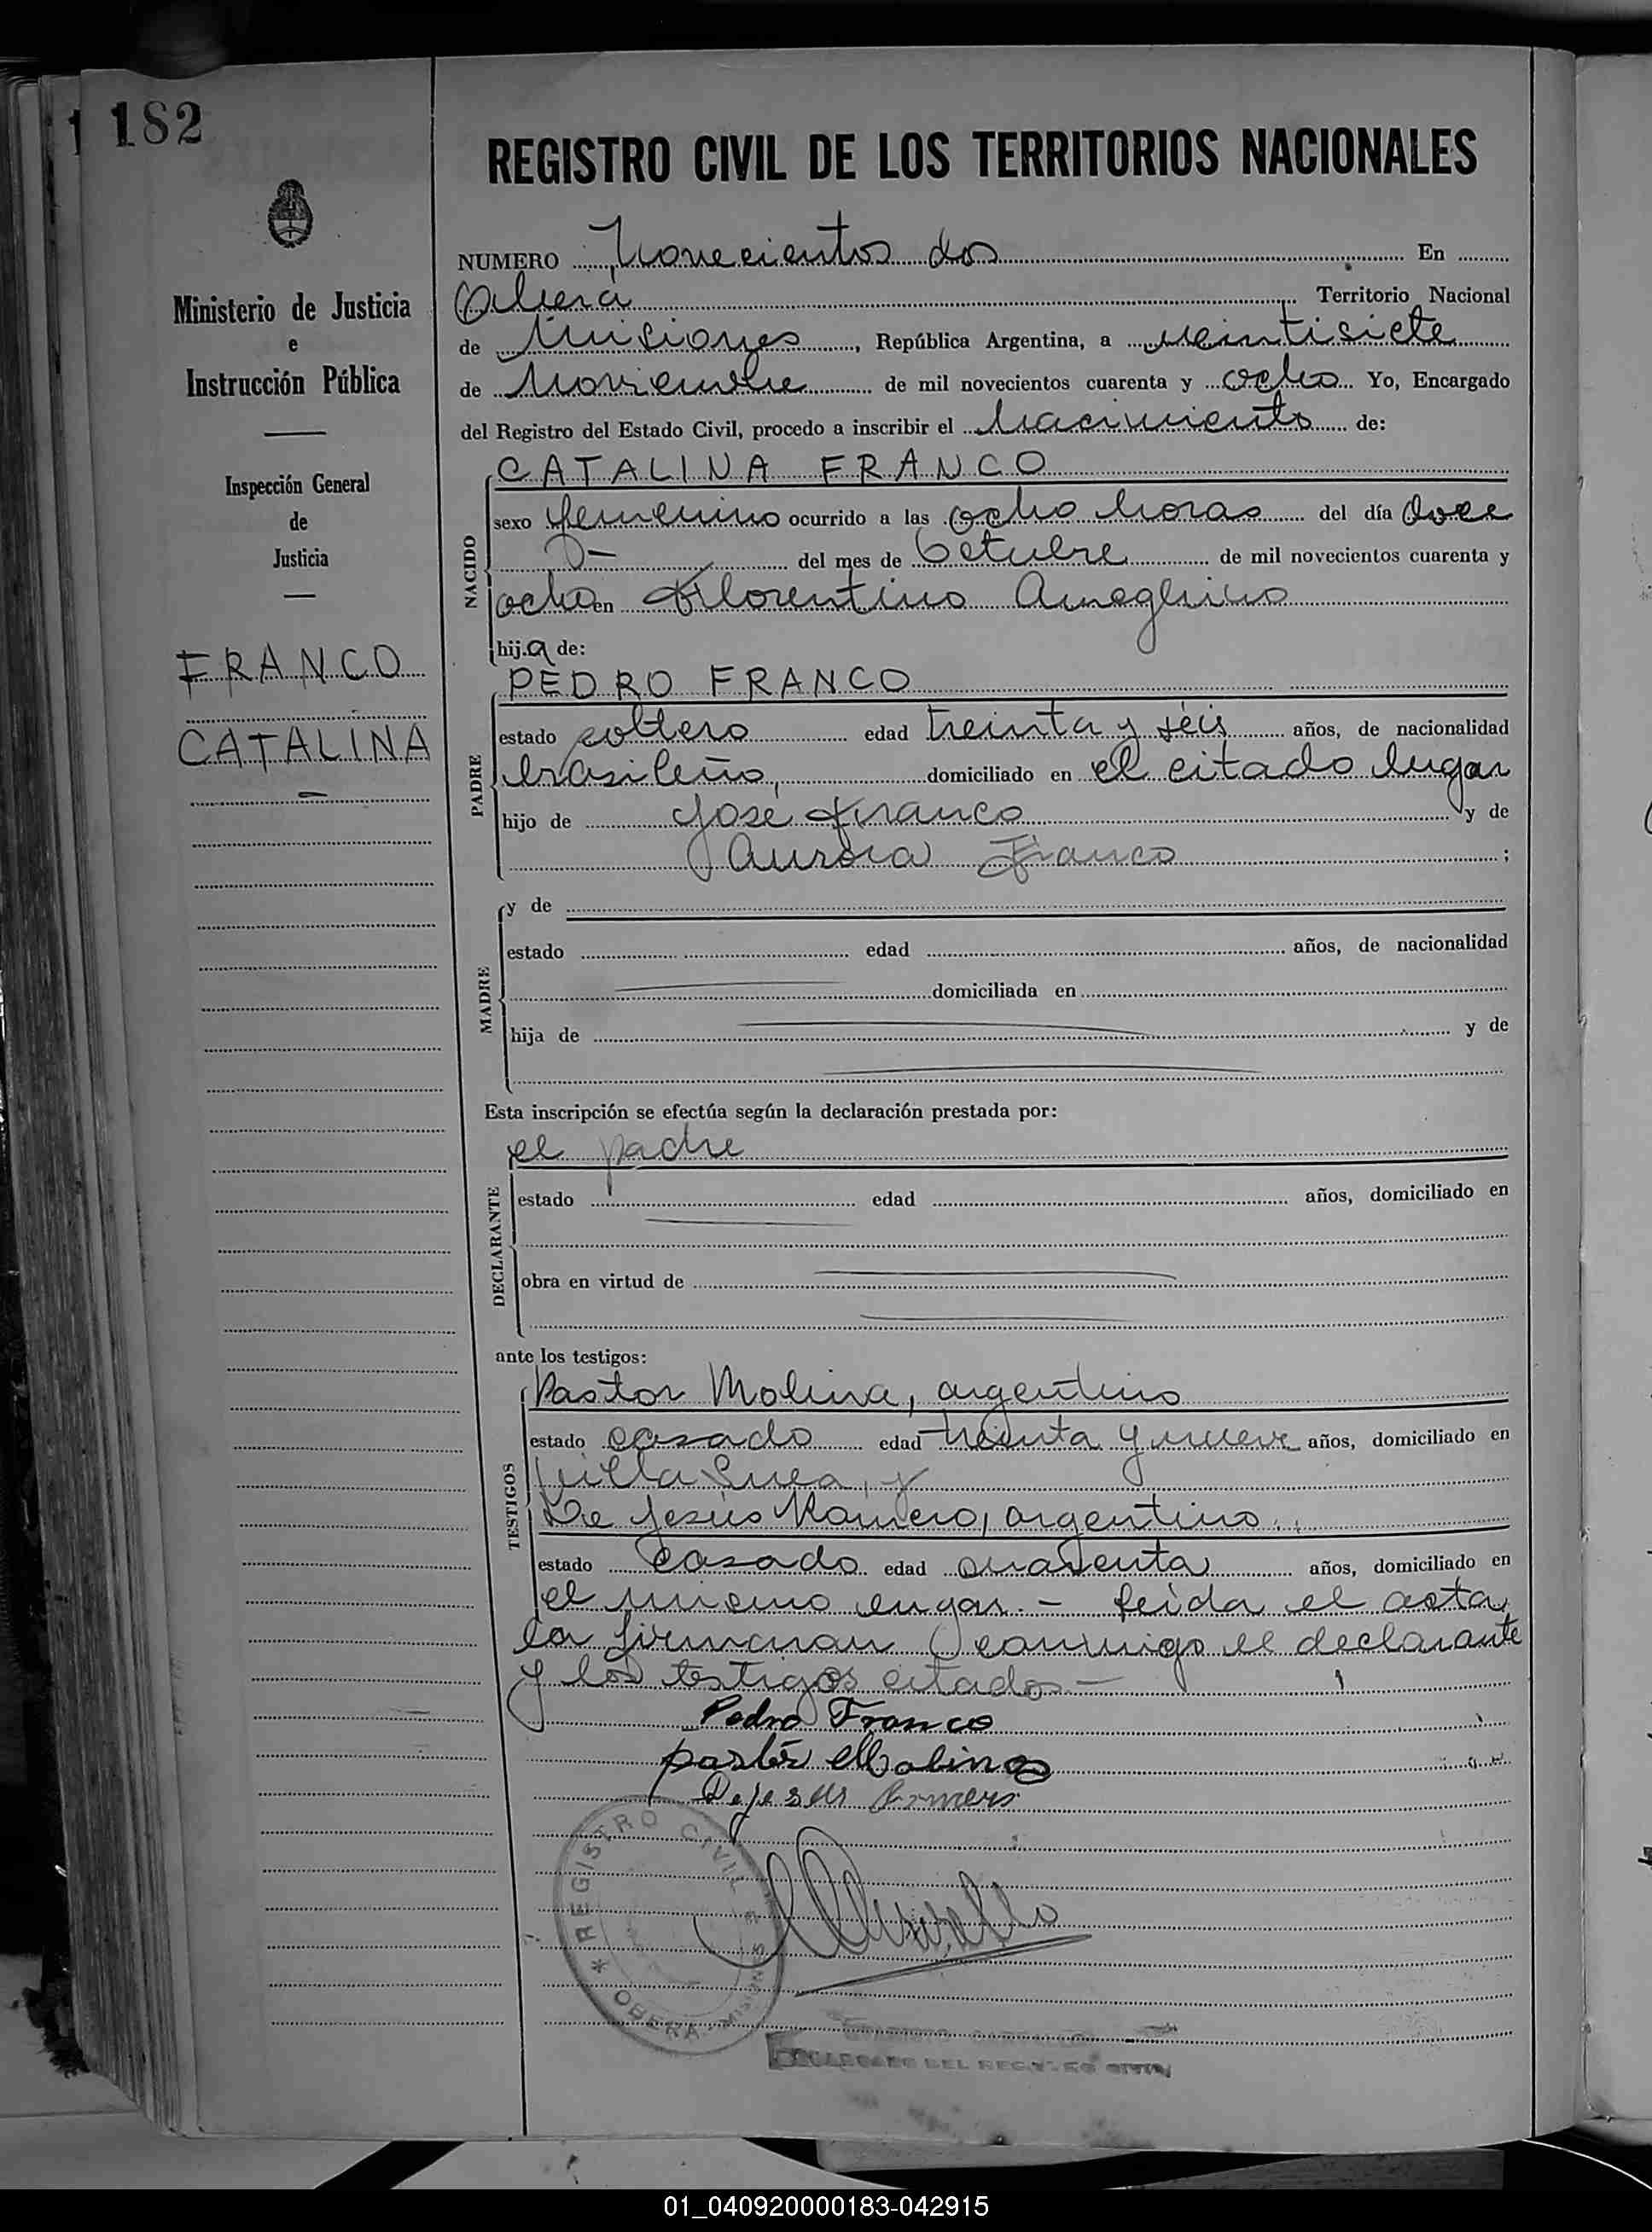 182
REGISTRO CIVIL DE LOS TERRITORIOS NACIONALES
Ministerio de Justicia
e
Instrucción Pública
Inspección General
de
Justicia
FRANCO
CATALINA
NUMERO Novecientos dos En
Oberá Territorio Nacional
de Misiones, República Argentina, a veintisiete
de Noviembre de mil novecientos cuarenta y ocho Yo, Encargado
del Registro del Estado Civil, procedo a inscribir el Nacimiento de:
NACIDO
CATALINA FRANCO
sexo femenino ocurrido a las ocho horas del día doce
del mes de Octubre de mil novecientos cuarenta y
ocho en Florentino Ameghino
hija de:
PADRE
PEDRO FRANCO
estado soltero edad treinta y séis años, de nacionalidad
brasileño, domiciliado en el citado lugar
hijo de José Franco y de
Aurora Franco ;
MADRE
y de
estado edad años, de nacionalidad
domiciliada en
hija de y de
Esta inscripción se efectúa según la declaración prestada por:
DECLARANTE
el padre
estado edad años, domiciliado en
obra en virtud de
ante los testigos:
TESTIGOS
Pastor Molina, argentino
estado casado edad treinta y nueve años, domiciliado en
Villa Svea, y
De Jesús Romero, argentino
estado casado edad cuarenta años, domiciliado en
el mismo lugar.- Leída el acta,
la firmaron conmigo el declarante
y los testigos citados.-
Pedro Franco
pastór Molina
Dejesus Romero
* REGISTRO CIVIL
OBERA - MISIONES
DEL REGISTRO CIVIL
01_040920000183-042915